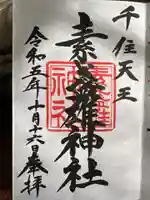 千住天王
素盞雄神社
令和五年十月十六日奉拝